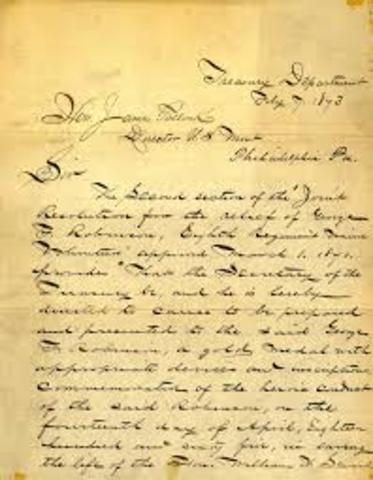 Treasury Department
Feby 7, 1873
Hon. James Pollock
Director U.S. Mint
Philadelphia Pa.
Sir
The Second section of the "Joint
Resolution for the relief of George
F. Robinson, Eighth Regiment Maine
Volunteers" approved March 1, 1871,
provides "That the Secretary of the
Treasury be, and he is hereby
directed to cause to be prepared
and presented to the said George
F. Robinson, a gold medal with
appropriate devices and inscriptions
commemorative of the heroic conduct
of the said Robinson, on the
fourteenth day of April, Eighteen
hundred and sixty five, in saving
the life of the Hon. William H. Seward